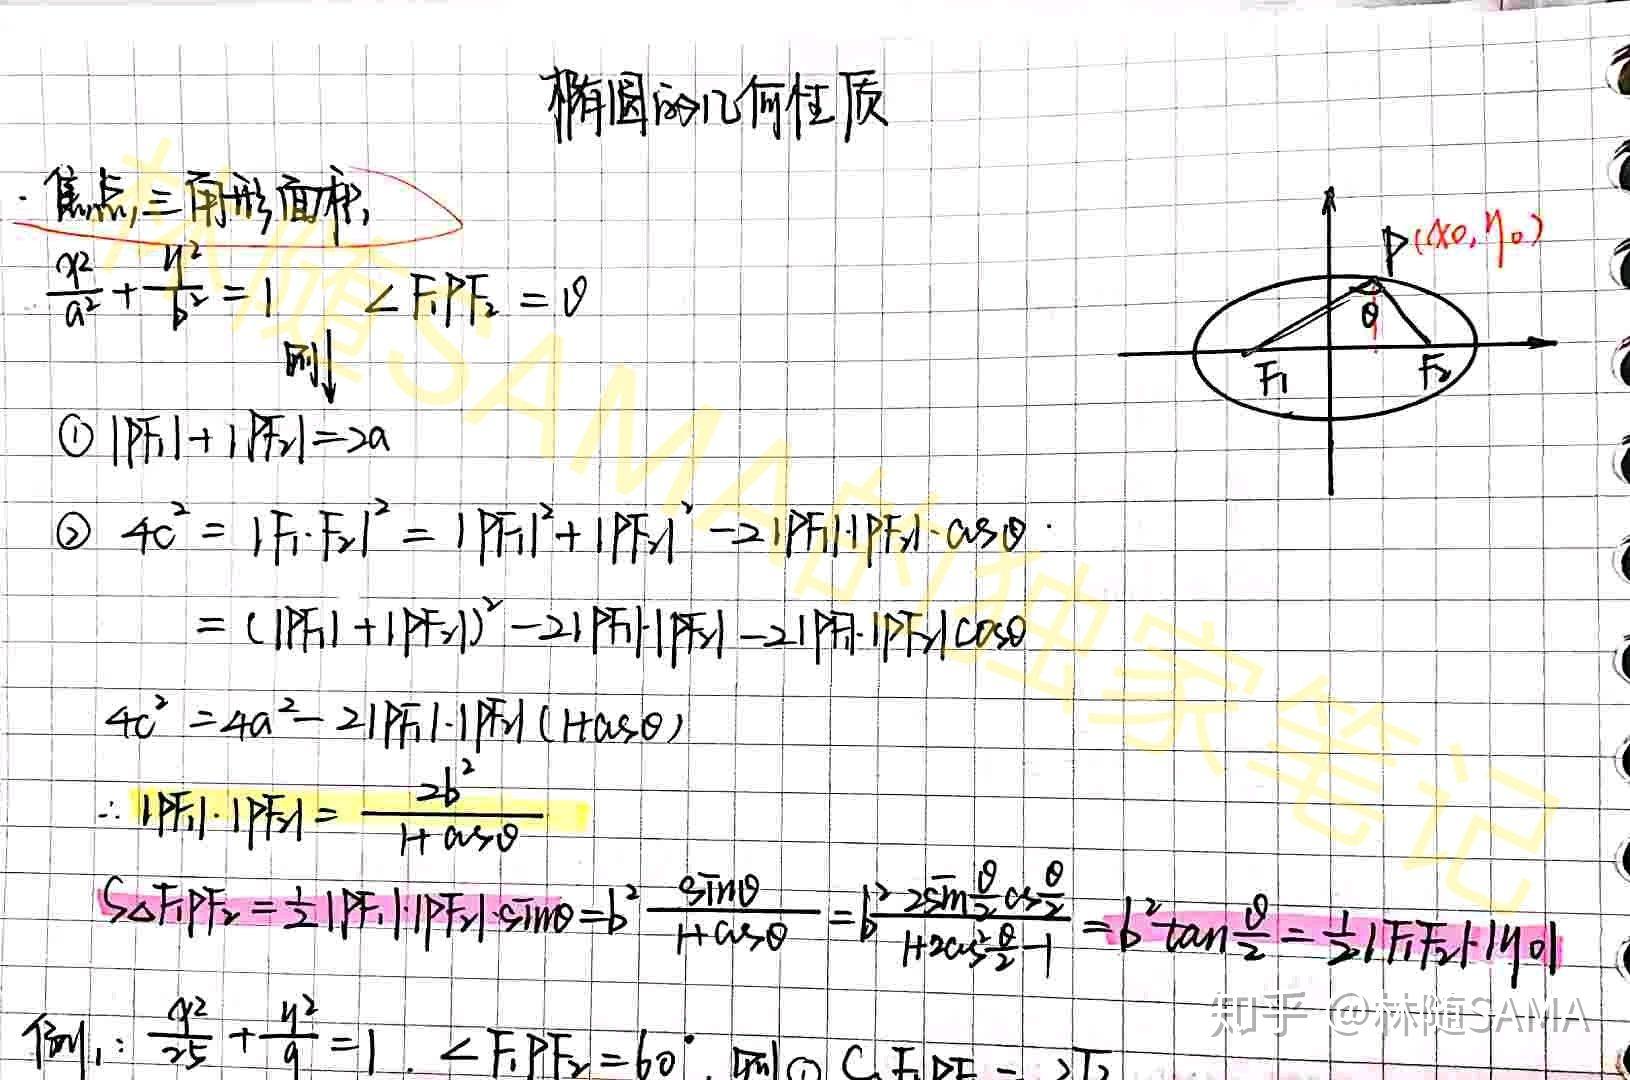 椭圆的几何性质
· 焦点三角形面积,
x²/a² + y²/b² = 1 ∠F₁PF₂ = θ
则↓
① |PF₁|+|PF₂|=2a
② 4c² = |F₁·F₂|² = |PF₁|²+|PF₂|² -2|PF₁|·|PF₂|·cosθ·
= (|PF₁|+|PF₂|)² -2|PF₁|·|PF₂| -2|PF₁|·|PF₂|cosθ
4c² = 4a² - 2|PF₁|·|PF₂|(1+cosθ)
∴ |PF₁|·|PF₂| = 2b²/(1+cosθ)
S△F₁PF₂ = ½|PF₁|·|PF₂|·sinθ = b² sinθ/(1+cosθ) = b² (2sin θ/2 cos θ/2)/(1+2cos² θ/2 -1) = b² tan θ/2 = ½|F₁F₂|·|y₀|
例1: x²/25 + y²/9 = 1. ∠F₁PF₂=60°. 则① S F₁PF₂ =
P(x₀,y₀)
θ
F₁ F₂
林随SAMA的独家笔记
知乎 @林随SAMA